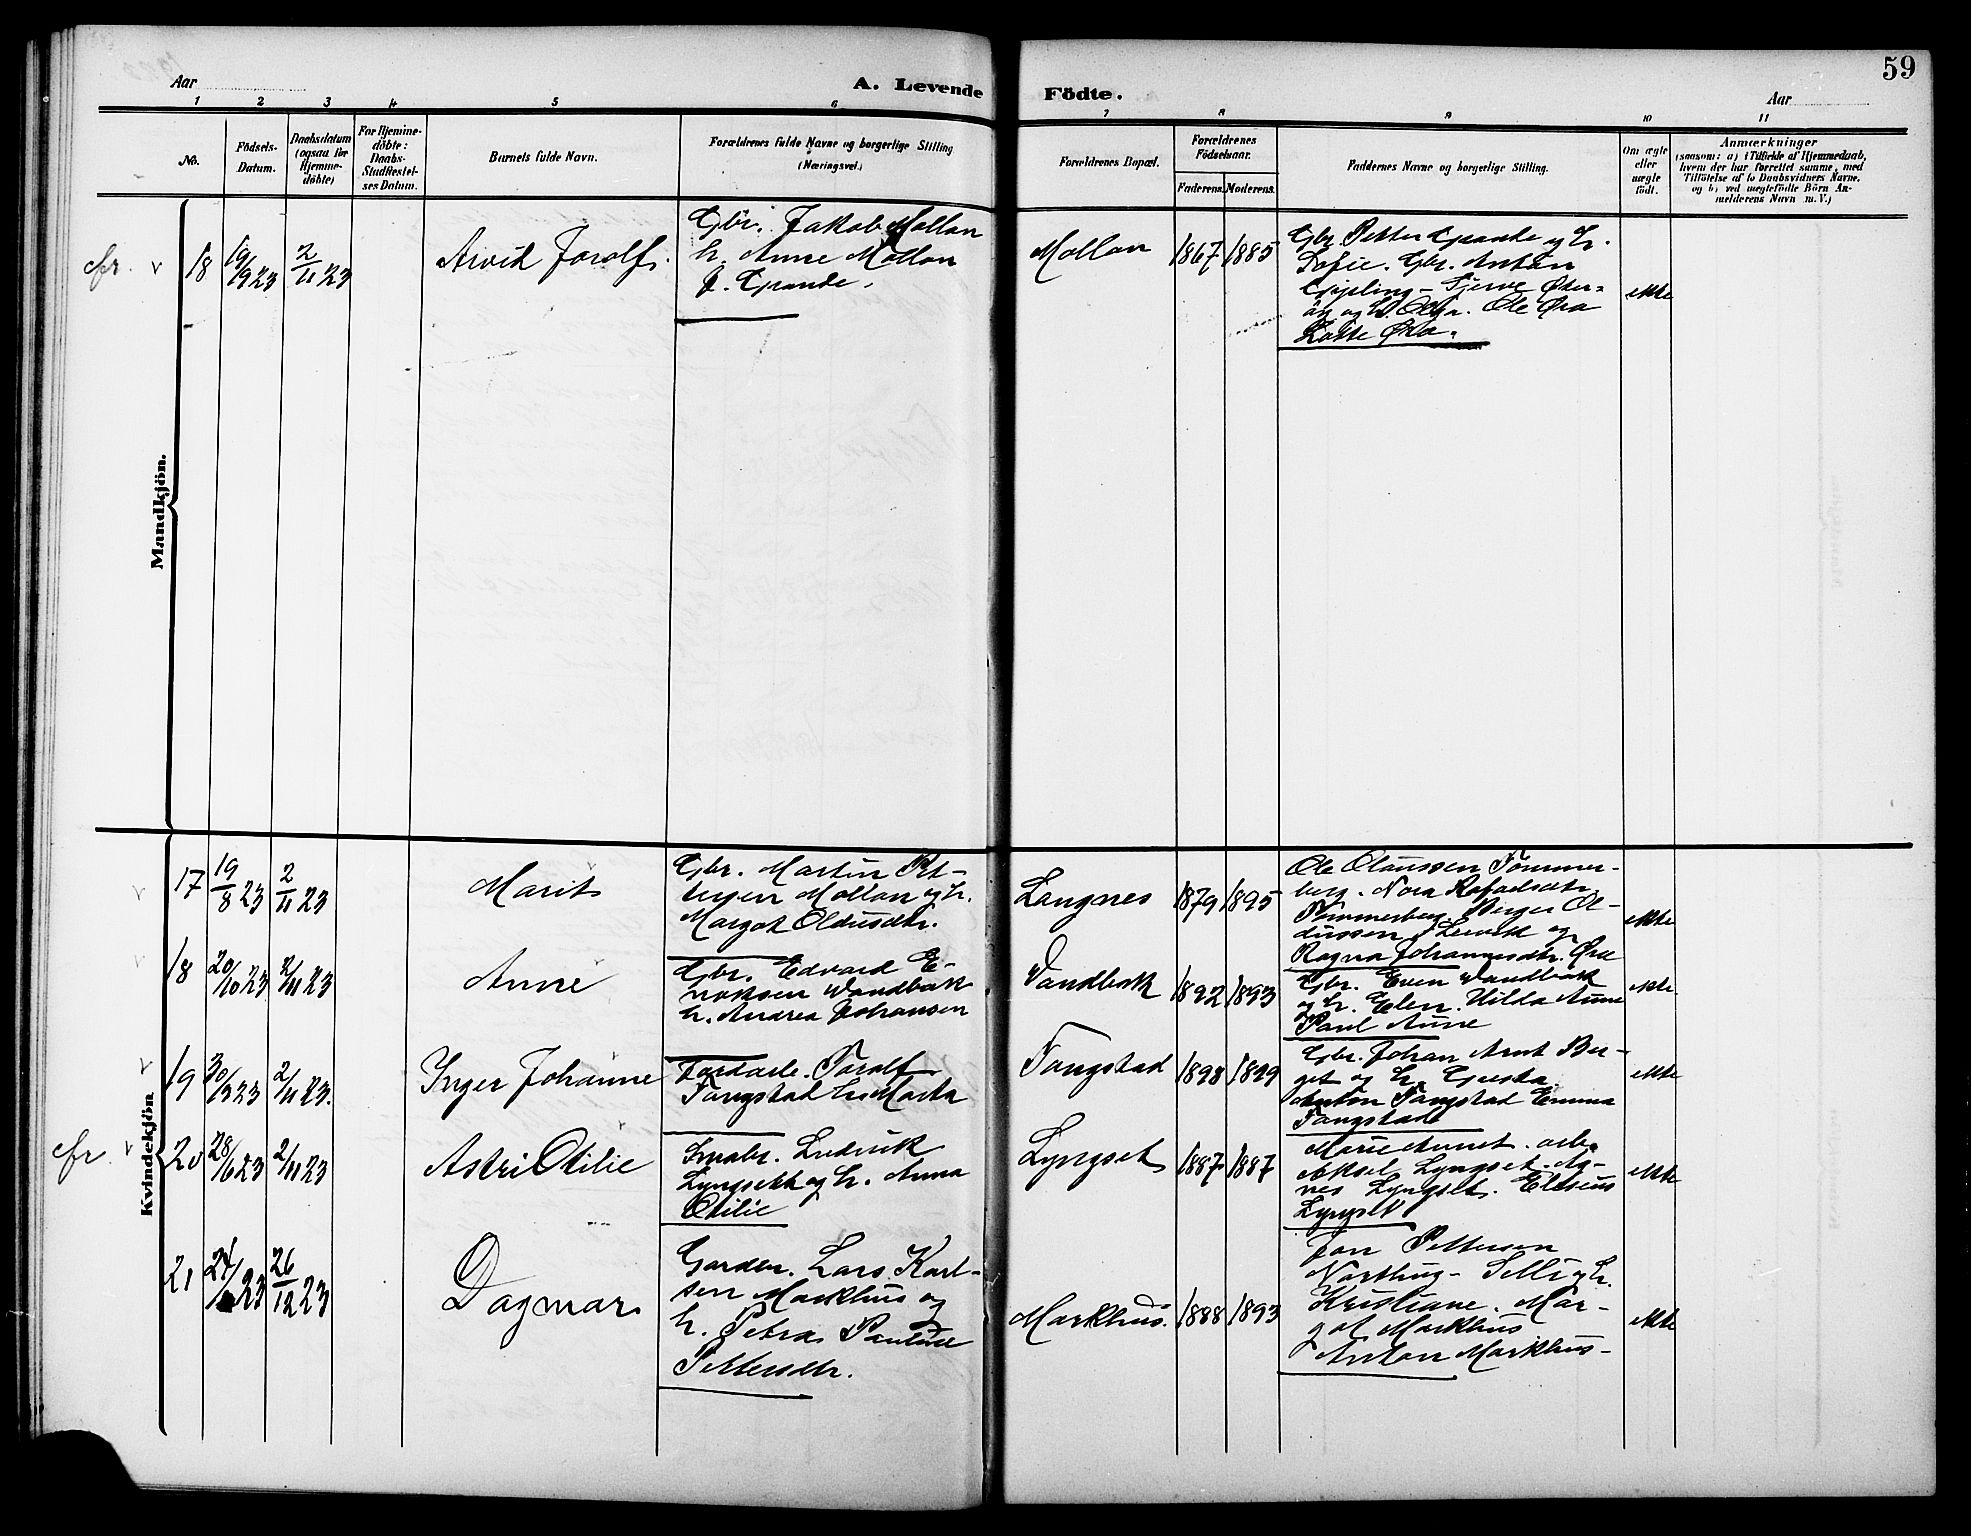 59
Aar
A. Levende Födte.
Aar
1 2 3 4 5 6 7 8 9 10 11
No.
Födsels-
Datum.
Daabsdatum
(ogsaa for
Hjemme-
döbte)
For Hjemme-
döbte:
Daabs-
Stadfæstel-
ses Datum.
Barnets fulde Navn.
Forældrenes fulde Navne og borgerlige Stilling
(Næringsvei.)
Forældrenes Bopæl.
Forældrenes
Födselsaar.
Faderens. Moderens.
Faddernes Navne og borgerlige Stilling.
Om ægte
eller
uægte
födt.
Anmærkninger
(saasom: a) i Tilfælde af Hjemmedaab,
hvem der har forrettet samme, med
Tilföielse af to Daabsvidners Navne,
og b) ved uægtefödte Börn An-
melderens Navn m. V.)
Mandkjön.
18 19/9 23 2/11 23
Arvid Torolf.
Gbr. Jakob Mollan
h. Anne Mollan
f. Grande.
Mollan 1867 1885
Gbr. Petter Grande og h.
Sofie. Gbr. Anton
Ole Øra
Lotte Øra.
ekte
Kvindekjön
17 19/8 23 2/11 23
Marit
Gbr. Martin Pet-
tersen Mollan og h.
Margot Oldusdtr.
Langnes 1879 1895
Ole Olaussen Tømmer-
berg. Nora Rafaelsdtr.
Tømmerberg. Birger Ol-
dussen, Leirvik og
Ragna Johannesdtr. Øra
ekte
18 20/10 23 2/11 23
Anne
Gbr. Edvard E-
noksen Vandbak
h. Andrea Johansen
Vandbak 1892 1893
Gbr. Even Vandbak
og h. Elen. Hilda Aune
Paul Aune
ekte
19 30/9 23 2/11 23.
Inger Johanne
Torolf
Tangstad h. Marta
Tangstad 1898 1899
Gbr. Johan Arnt Ber-
get og h.
Anton Tangstad Emma
Tangstad
ekte
20 28/10 23 2/11 23
Astri Otilie
Smabr. Ludvik
Lyngsett og h. Anna
Otilie
Lyngset 1887 1887
Marie Aunet. arb.
Aksel Lyngset. Ag-
nes Lyngset. Eliseus
Lyngset
ekte
21 24/ 23 26/12 23
Dagmar
Garder. Lars Karl-
sen Markhus og
h. Petra Pauline
Pettersdtr.
Markhus. 1888 1893
Jon Pettersen
Northug - Selli og h.
Kristiane. Mar-
got Markhus
Anton Markhus -
ekte